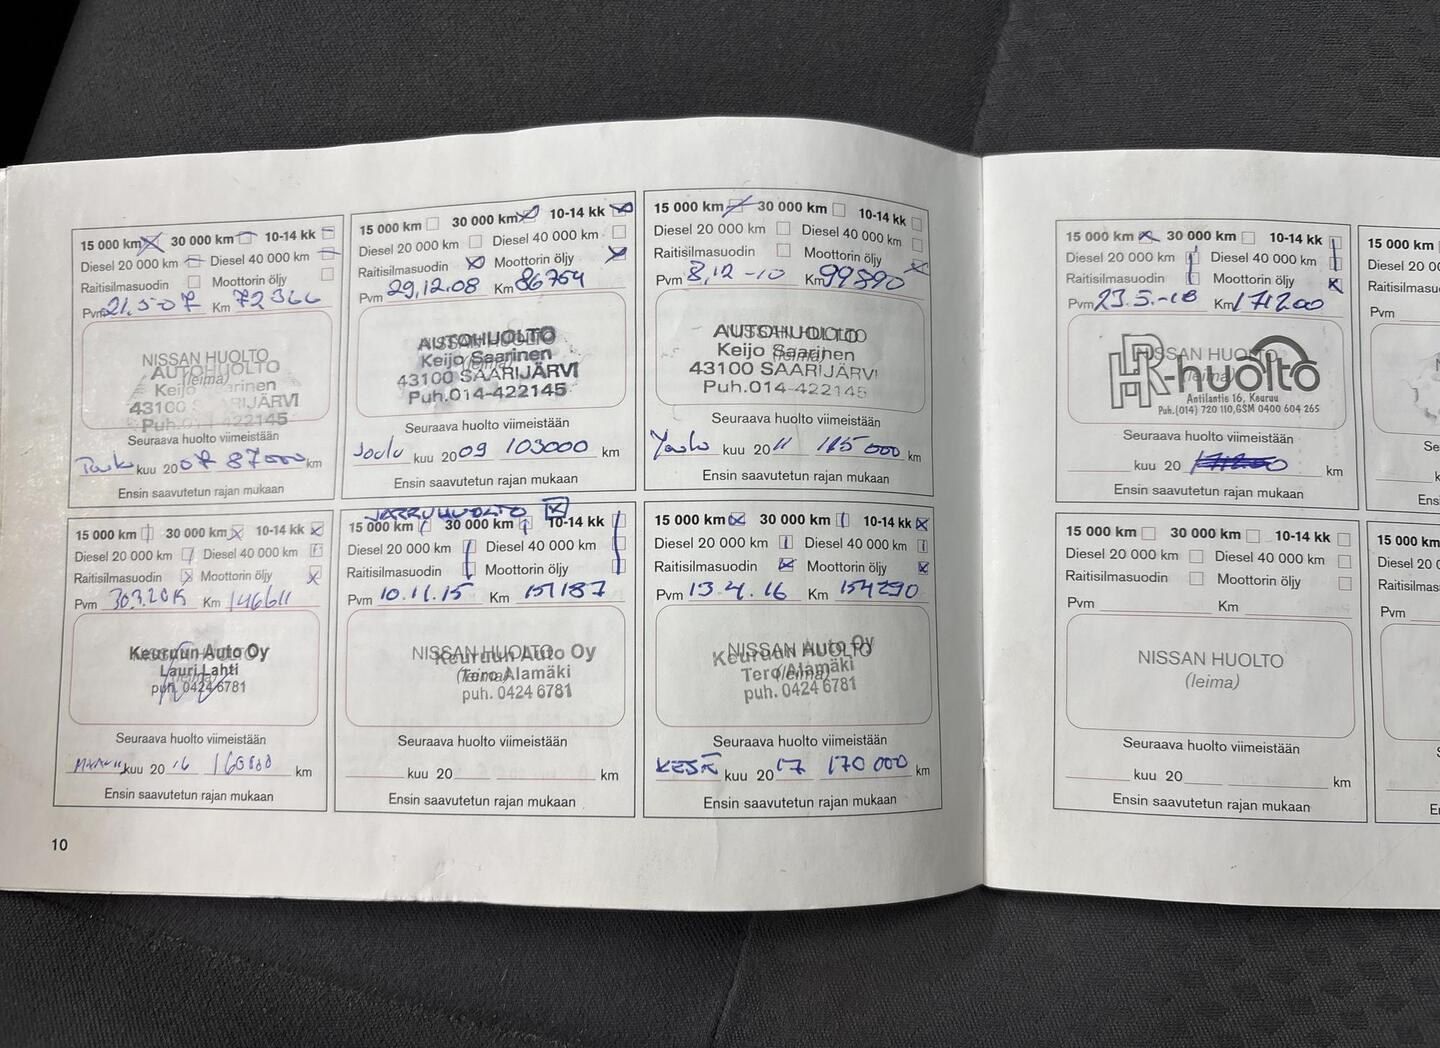 15 000 km 30 000 km 10-14 kk
Diesel 20 000 km Diesel 40 000 km
Raitisilmasuodin Moottorin öljy
Pvm 21.5-07 Km 72366
NISSAN HUOLTO
(leima)
AUTOHUOLTO
Keijo Saarinen
43100 SAARIJÄRVI
Puh.014-422145
Seuraava huolto viimeistään
kuu 2007 87000 km
Ensin saavutetun rajan mukaan
15 000 km 30 000 km 10-14 kk
Diesel 20 000 km Diesel 40 000 km
Raitisilmasuodin Moottorin öljy
Pvm 29.12.08 Km 86754
AUTOHUOLTO
Keijo Saarinen
43100 SAARIJÄRVI
Puh.014-422145
Seuraava huolto viimeistään
Joulu kuu 2009 103000 km
Ensin saavutetun rajan mukaan
15 000 km 30 000 km 10-14 kk
Diesel 20 000 km Diesel 40 000 km
Raitisilmasuodin Moottorin öljy
Pvm 8,12-10 Km 99890
AUTOHUOLTO
Keijo Saarinen
43100 SAARIJÄRVI
Puh.014-422145
Seuraava huolto viimeistään
kuu 2011 115000 km
Ensin saavutetun rajan mukaan
15 000 km 30 000 km 10-14 kk
Diesel 20 000 km Diesel 40 000 km
Raitisilmasuodin Moottorin öljy
Pvm 30.3.2015 Km 146611
Keuruun Auto Oy
Lauri Lahti
puh. 0424 6781
Seuraava huolto viimeistään
kuu 2016 160000 km
Ensin saavutetun rajan mukaan
JARRUHUOLTO
15 000 km 30 000 km 10-14 kk
Diesel 20 000 km Diesel 40 000 km
Raitisilmasuodin Moottorin öljy
Pvm 10.11.15 Km 151187
NISSAN HUOLTO
(leima)
Keuruun Auto Oy
Tero Alamäki
puh. 0424 6781
Seuraava huolto viimeistään
kuu 20 km
Ensin saavutetun rajan mukaan
15 000 km 30 000 km 10-14 kk
Diesel 20 000 km Diesel 40 000 km
Raitisilmasuodin Moottorin öljy
Pvm 13.4.16 Km 154290
NISSAN HUOLTO
(leima)
Keuruun Auto Oy
Tero Alamäki
puh. 0424 6781
Seuraava huolto viimeistään
KESÄ kuu 2017 170 000 km
Ensin saavutetun rajan mukaan
10
15 000 km 30 000 km 10-14 kk
Diesel 20 000 km Diesel 40 000 km
Raitisilmasuodin Moottorin öljy
Pvm 23.5.-18 Km 171200
NISSAN HUOLTO
(leima)
HR-huolto
Antilantie 16, Keuruu
Puh.(014) 720 110,GSM 0400 604 265
Seuraava huolto viimeistään
kuu 20 km
Ensin saavutetun rajan mukaan
15 000 km 30 000 km 10-14 kk
Diesel 20 000 km Diesel 40 000 km
Raitisilmasuodin Moottorin öljy
Pvm Km
NISSAN HUOLTO
(leima)
Seuraava huolto viimeistään
kuu 20 km
Ensin saavutetun rajan mukaan
15 000 km
Pvm
15 000 km
Pvm